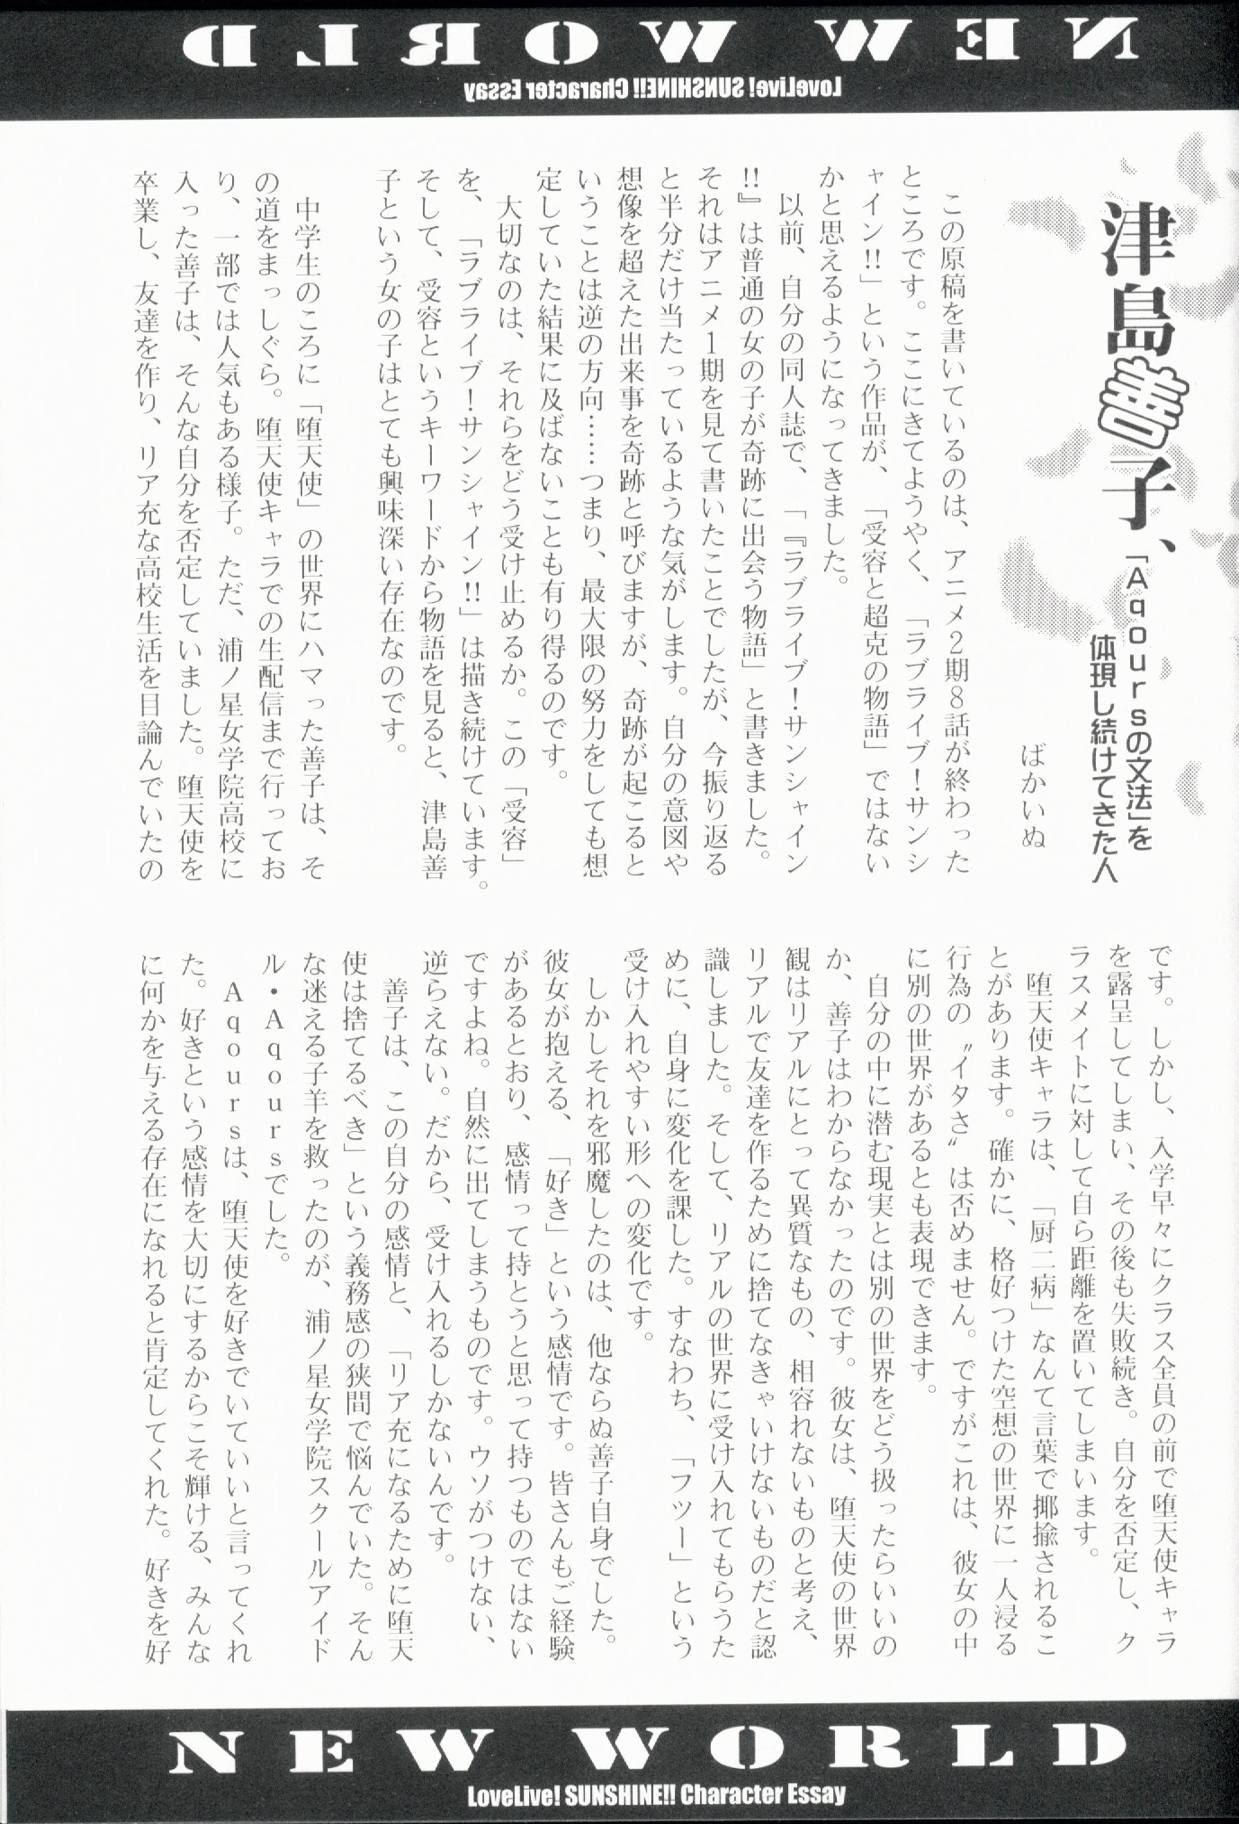 NEW WORLD
LoveLive! SUNSHINE!! Character Essay
津島善子、
「Aqoursの文法」を
体現し続けてきた人
ばかいぬ
この原稿を書いているのは、アニメ2期8話が終わった
ところです。ここにきてようやく、「ラブライブ!サンシ
ャイン!!」という作品が、「受容と超克の物語」ではない
かと思えるようになってきました。
以前、自分の同人誌で、「『ラブライブ!サンシャイン
!!』は普通の女の子が奇跡に出会う物語」と書きました。
それはアニメ1期を見て書いたことでしたが、今振り返る
と半分だけ当たっているような気がします。自分の意図や
想像を超えた出来事を奇跡と呼びますが、奇跡が起こると
いうことは逆の方向……つまり、最大限の努力をしても想
定していた結果に及ばないことも有り得るのです。
大切なのは、それらをどう受け止めるか。この「受容」
を、「ラブライブ!サンシャイン!!」は描き続けています。
そして、受容というキーワードから物語を見ると、津島善
子という女の子はとても興味深い存在なのです。
中学生のころに「堕天使」の世界にハマった善子は、そ
の道をまっしぐら。堕天使キャラでの生配信まで行ってお
り、一部では人気もある様子。ただ、浦ノ星女学院高校に
入った善子は、そんな自分を否定していました。堕天使を
卒業し、友達を作り、リア充な高校生活を目論んでいたの
です。しかし、入学早々にクラス全員の前で堕天使キャラ
を露呈してしまい、その後も失敗続き。自分を否定し、ク
ラスメイトに対して自ら距離を置いてしまいます。
堕天使キャラは、「厨二病」なんて言葉で揶揄されるこ
とがあります。確かに、格好つけた空想の世界に一人浸る
行為の〝イタさ〟は否めません。ですがこれは、彼女の中
に別の世界があるとも表現できます。
自分の中に潜む現実とは別の世界をどう扱ったらいいの
か、善子はわからなかったのです。彼女は、堕天使の世界
観はリアルにとって異質なもの、相容れないものと考え、
リアルで友達を作るために捨てなきゃいけないものだと認
識しました。そして、リアルの世界に受け入れてもらうた
めに、自身に変化を課した。すなわち、「フツー」という
受け入れやすい形への変化です。
しかしそれを邪魔したのは、他ならぬ善子自身でした。
彼女が抱える、「好き」という感情です。皆さんもご経験
があるとおり、感情って持とうと思って持つものではない
ですよね。自然に出てしまうものです。ウソがつけない、
逆らえない。だから、受け入れるしかないんです。
善子は、この自分の感情と、「リア充になるために堕天
使は捨てるべき」という義務感の狭間で悩んでいた。そん
な迷える子羊を救ったのが、浦ノ星女学院スクールアイド
ル・Aqoursでした。
Aqoursは、堕天使を好きでいていいと言ってくれ
た。好きという感情を大切にするからこそ輝ける、みんな
に何かを与える存在になれると肯定してくれた。好きを好
NEW WORLD
LoveLive! SUNSHINE!! Character Essay